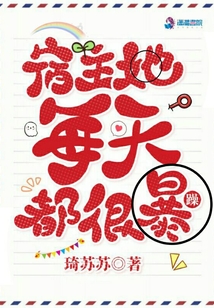 宿主她
每天
都很暴
躁
琦苏苏◎著